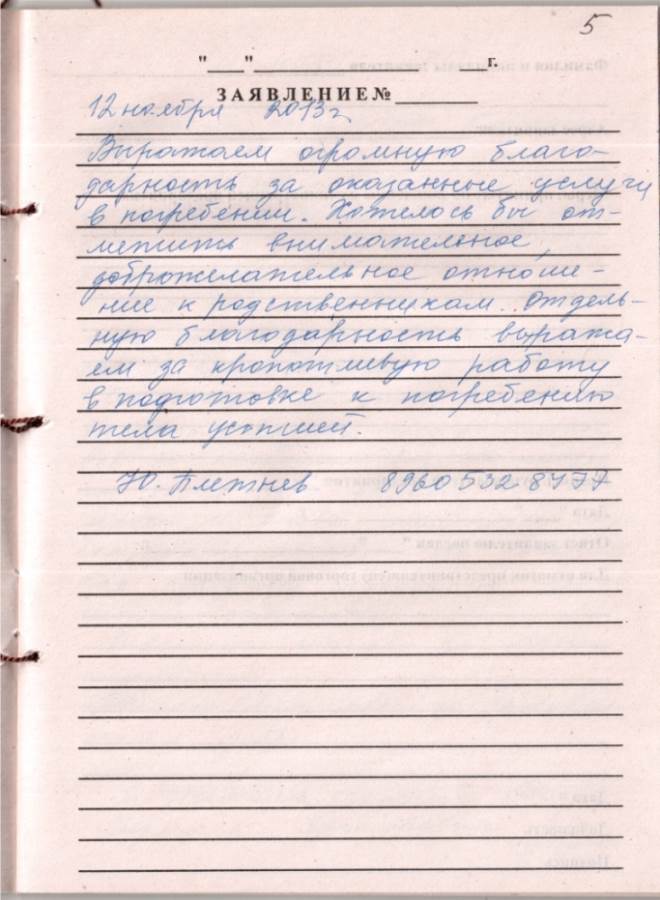 5
"___"______________ ___г.
ЗАЯВЛЕНИЕ №________
12 ноября 2013г.
Выражаем огромную благо-
дарность за оказанные услуги
в погребении. Хотелось бы от-
метить внимательное,
доброжелательное отноше-
ние к родственникам. Отдель-
ную благодарность выража-
ем за кропотливую работу
в подготовке к погребению
тела усопшей.
Ю. Плетнев 8960 532 8477